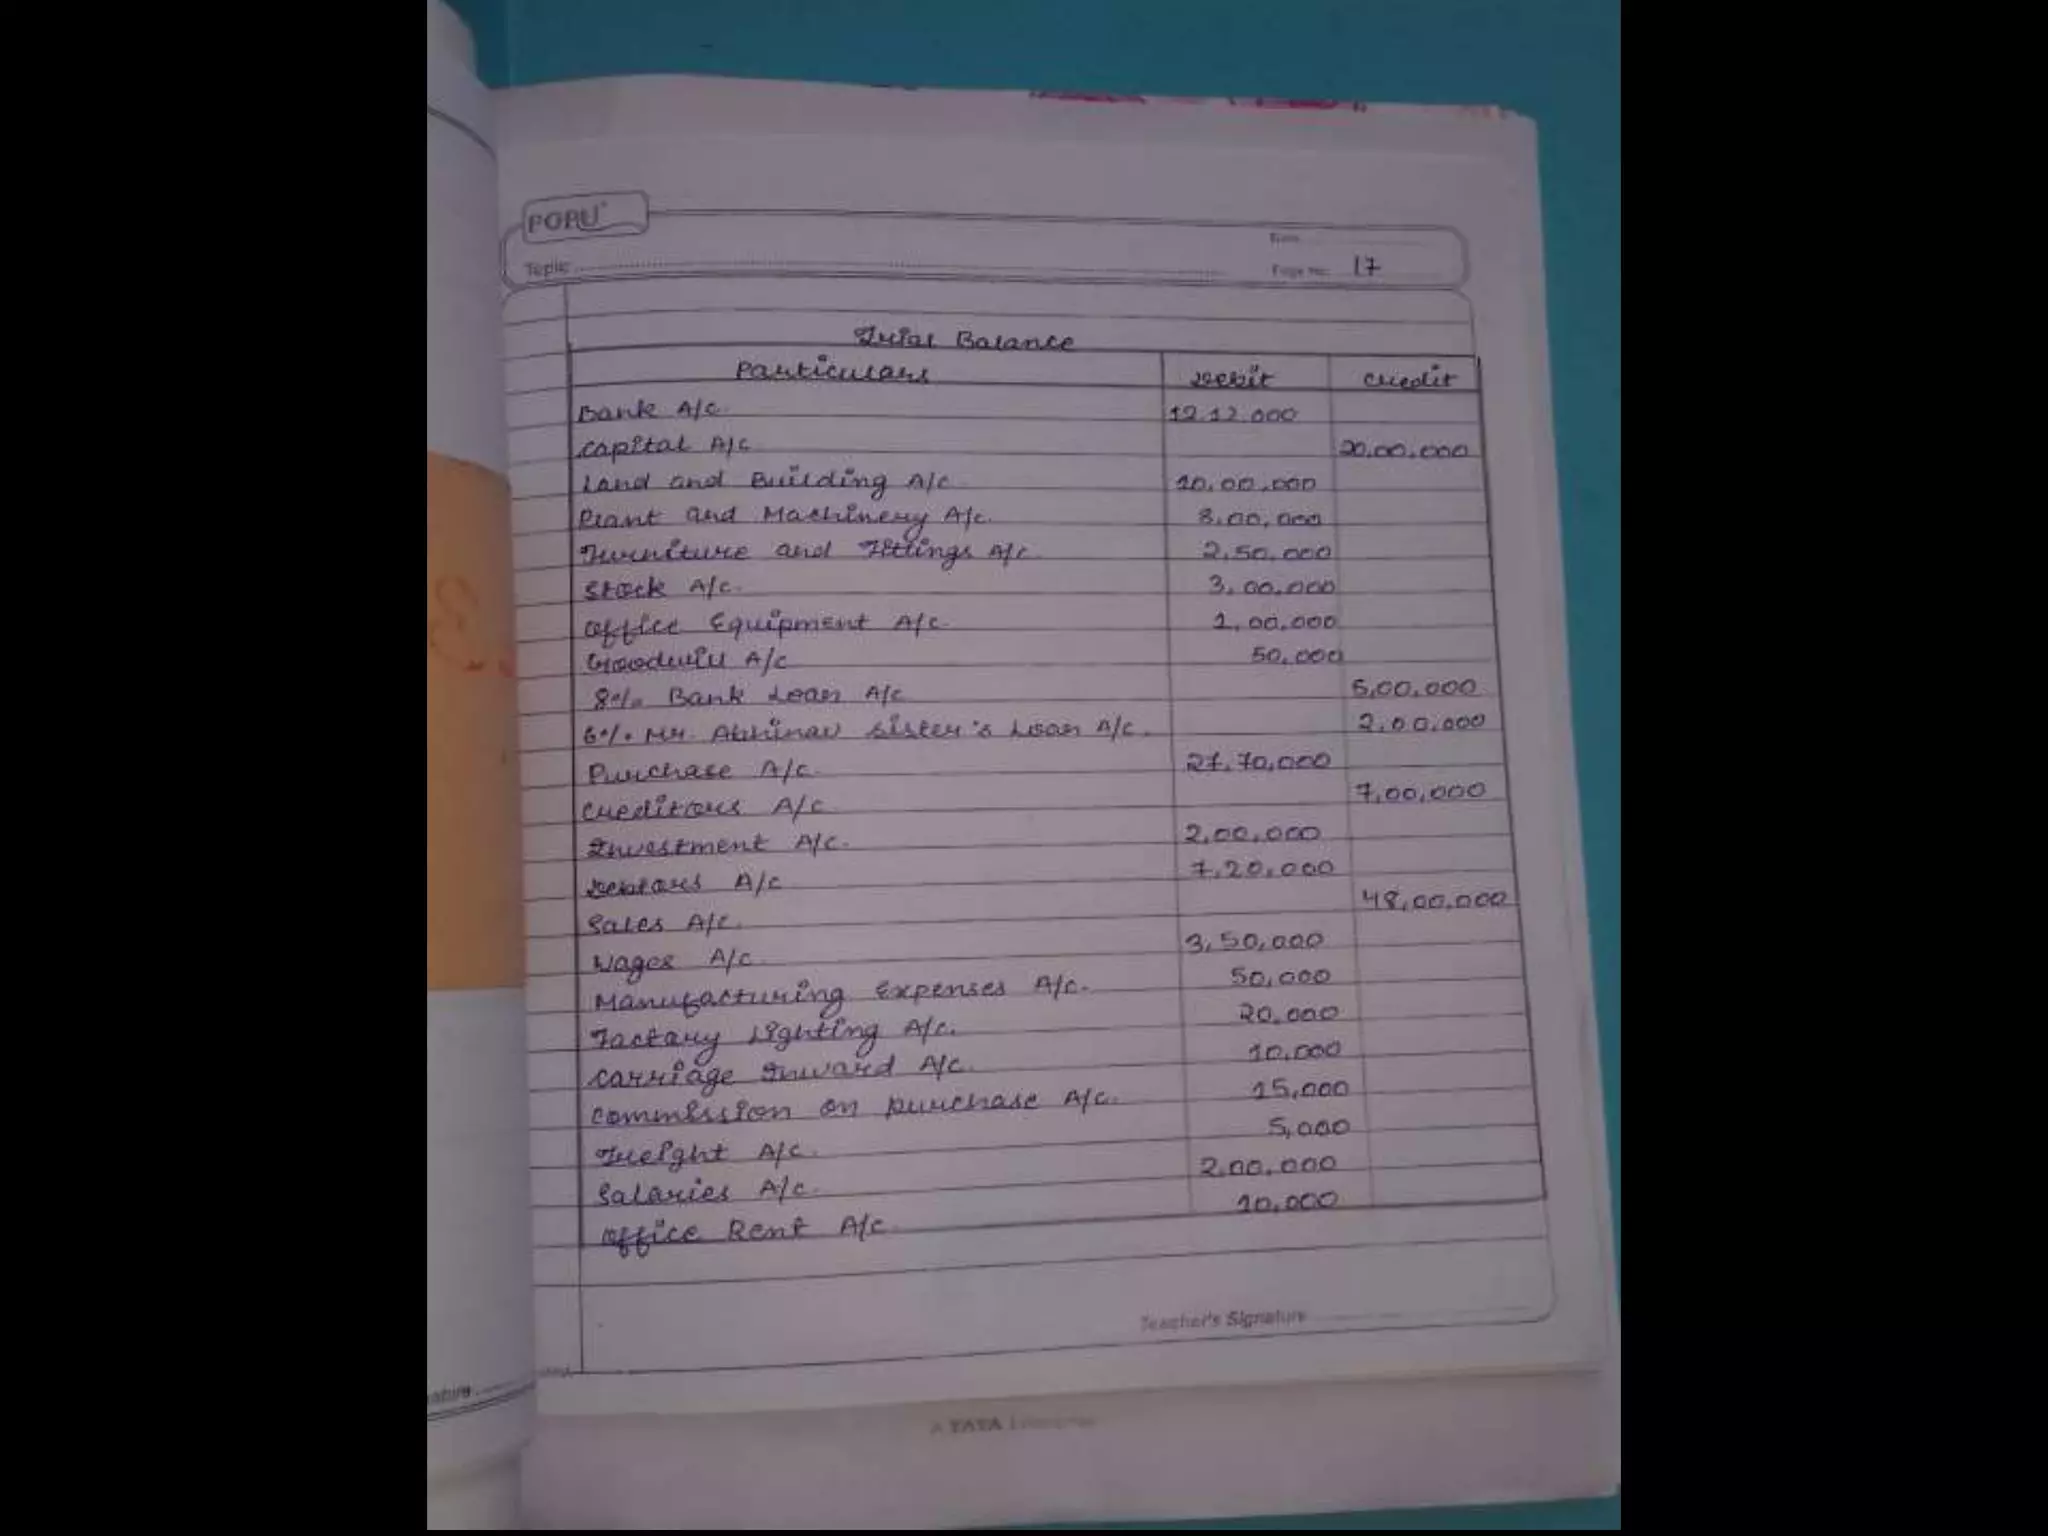 POPU
Topic
Page No. 17
Trial Balance
Particulars Debit Credit
Bank A/c. 12,12,000
Capital A/c 20,00,000
Land and Building A/c. 10,00,000
Plant and Machinery A/c. 8,00,000
Furniture and Fittings A/c 2,50,000
Stock A/c. 3,00,000
Office Equipment A/c. 1,00,000
Goodwill A/c 50,000
8% Bank Loan A/c 5,00,000
6% Mr. Abhinav Sister's Loan A/c. 2,00,000
Purchase A/c. 27,70,000
Creditors A/c 7,00,000
Investment A/c. 2,00,000
Debtors A/c 7,20,000
Sales A/c. 48,00,000
Wages A/c. 3,50,000
Manufacturing Expenses A/c. 50,000
Factory Lighting A/c. 20,000
Carriage Inward A/c. 10,000
Commission on purchase A/c. 15,000
Freight A/c. 5,000
Salaries A/c. 2,00,000
Office Rent A/c. 10,000
Teacher's Signature
A TATA